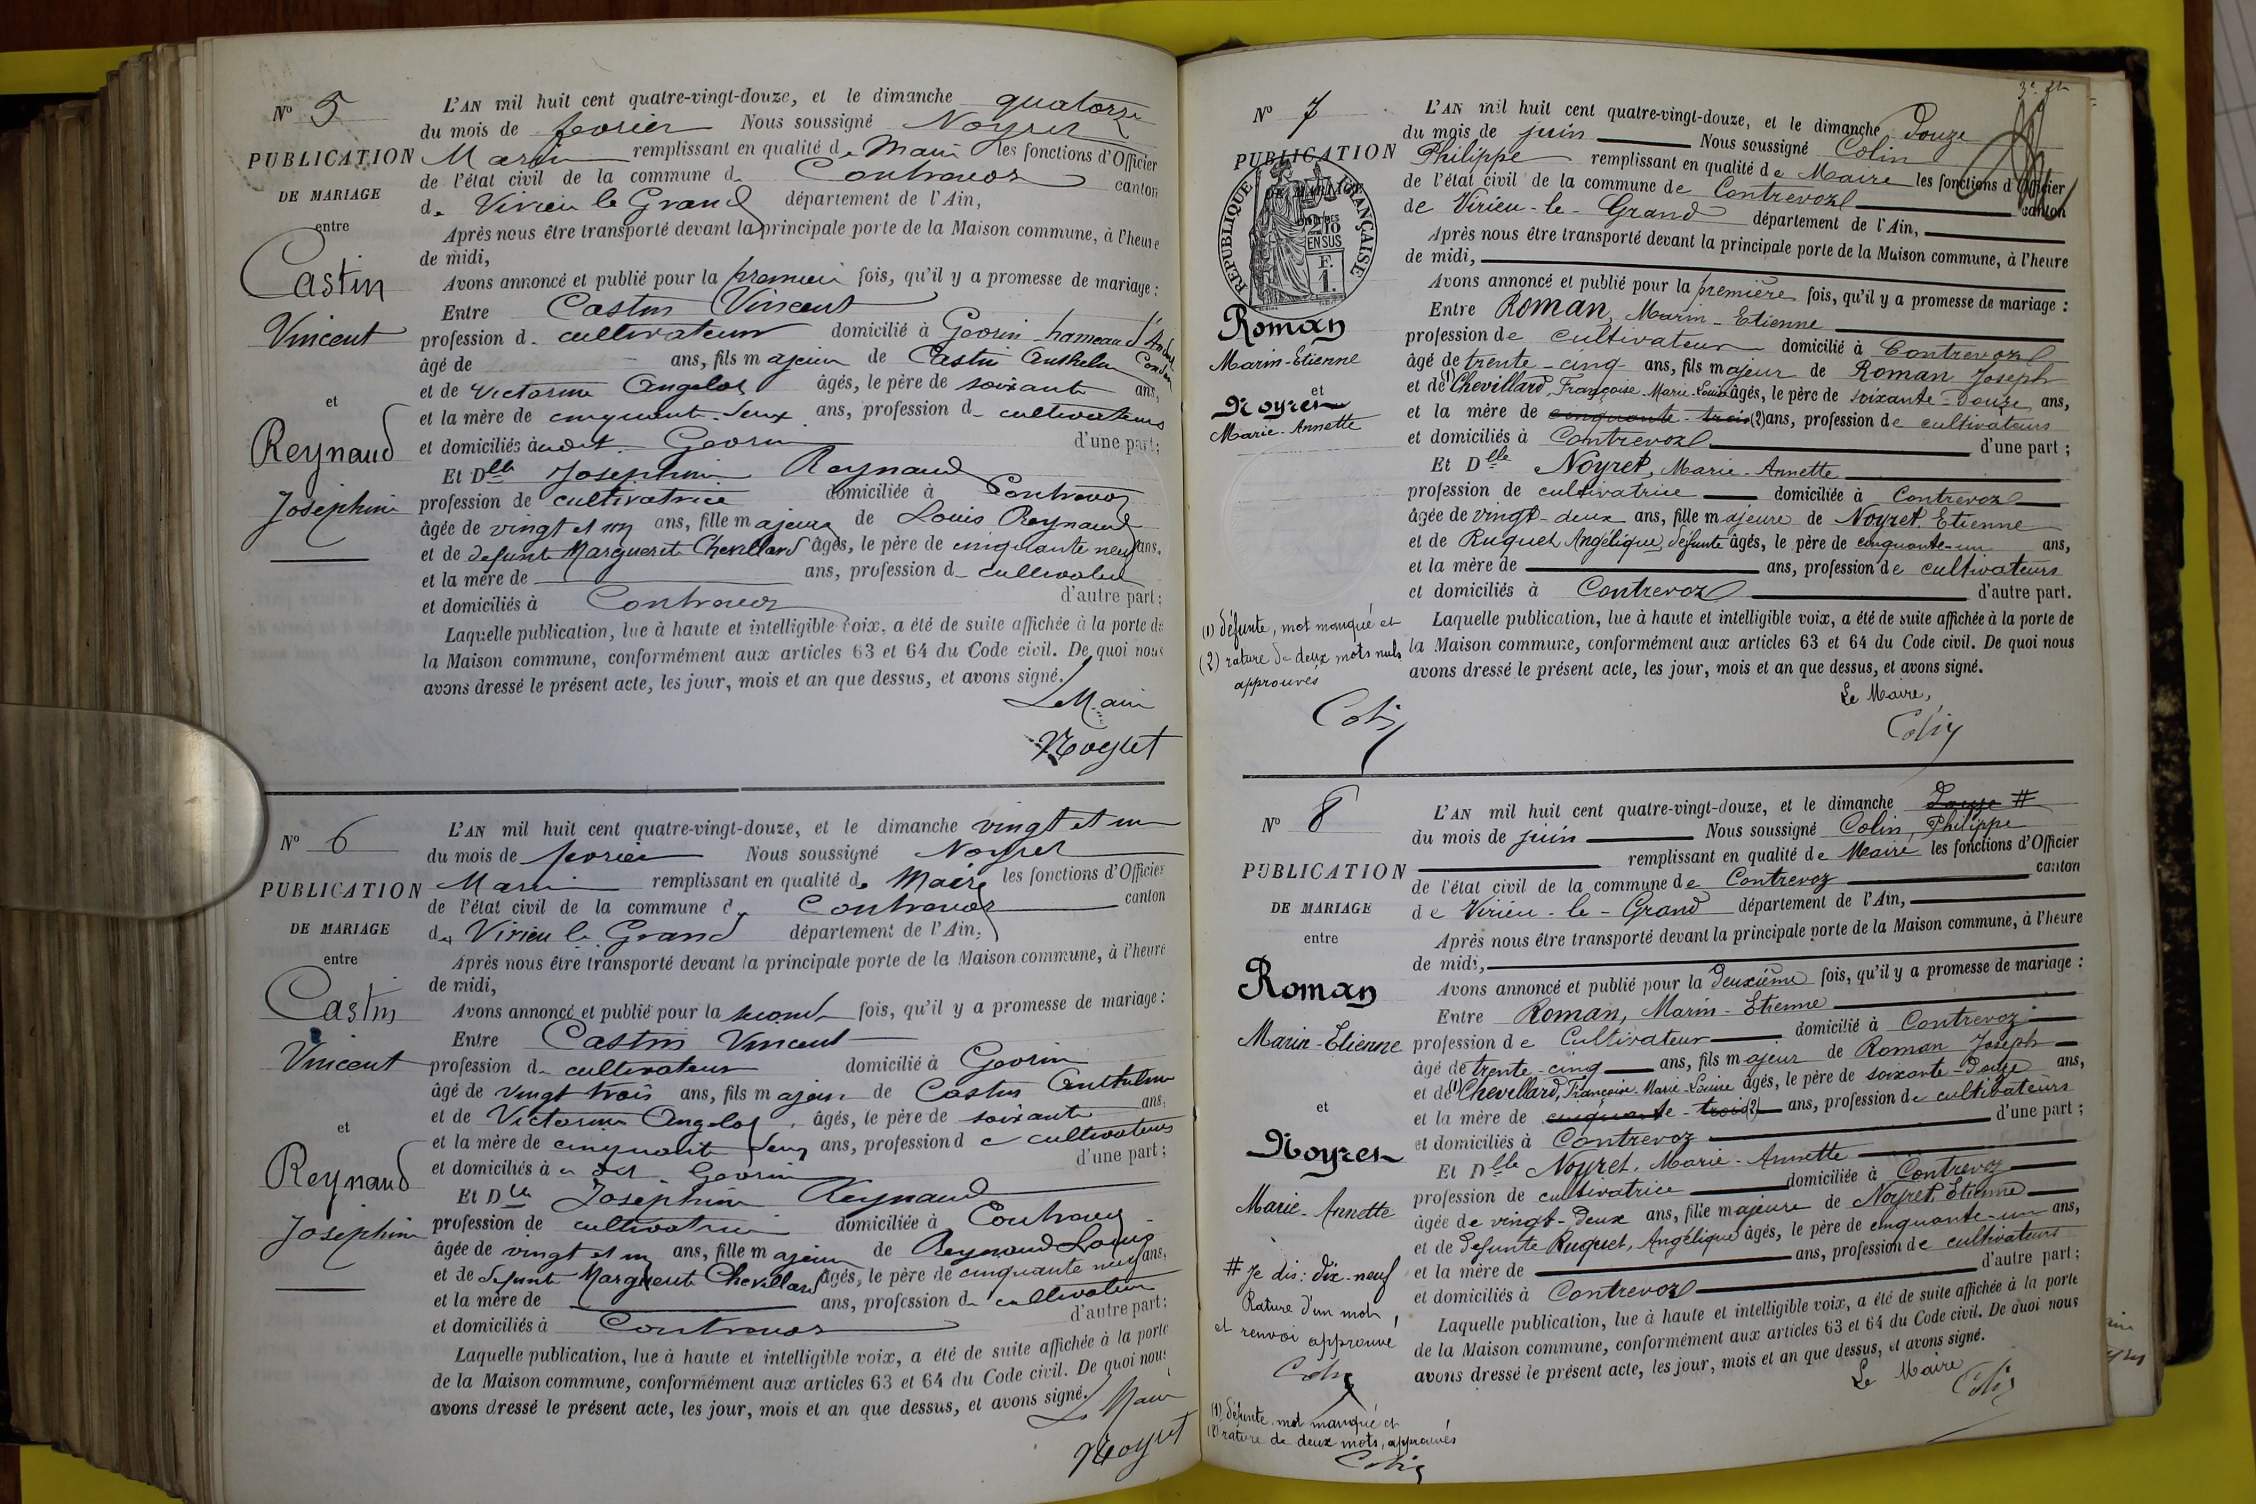 Nº 5
PUBLICATION
DE MARIAGE
entre
Castin
Vincent
et
Reynaud
Joséphine
L'AN mil huit cent quatre-vingt-douze, et le dimanche quatorze
du mois de fevrier Nous soussigné Noyret
Marin remplissant en qualité de Maire les fonctions d'Officier
de l'état civil de la commune de Contrevoz canton
de Virieu le Grand département de l'Ain,
Après nous être transporté devant la principale porte de la Maison commune, à l'heure
de midi,
Avons annoncé et publié pour la premiere fois, qu'il y a promesse de mariage :
Entre Castin Vincent
profession de cultivateur domicilié à Gevrin hameau d'
âgé de ans, fils majeur de Castin Anthelme
et de Victorine Angelot âgés, le père de soixante ans,
et la mère de cinquante-deux ans, profession de cultivateurs
et domiciliés à Gevrin d'une part;
Et Dlle Josephine Reynaud
profession de cultivatrice domiciliée à Contrevoz
âgée de vingt et un ans, fille majeure de Louis Reynaud
et de defunte Marguerite Chevillard âgés, le père de cinquante neuf ans,
et la mère de ans, profession de cultivateur
et domiciliés à Contrevoz d'autre part;
Laquelle publication, lue à haute et intelligible voix, a été de suite affichée à la porte de
la Maison commune, conformément aux articles 63 et 64 du Code civil. De quoi nous
avons dressé le présent acte, les jour, mois et an que dessus, et avons signé.
Le Maire
Noyret
Nº 6
PUBLICATION
DE MARIAGE
entre
Castin
Vincent
et
Reynaud
Joséphine
L'AN mil huit cent quatre-vingt-douze, et le dimanche vingt et un
du mois de fevrier Nous soussigné Noyret
Marin remplissant en qualité de Maire les fonctions d'Officier
de l'état civil de la commune de Contrevoz canton
de Virieu le Grand département de l'Ain,
Après nous être transporté devant la principale porte de la Maison commune, à l'heure
de midi,
Avons annoncé et publié pour la seconde fois, qu'il y a promesse de mariage :
Entre Castin Vincent
profession de cultivateur domicilié à Gevrin
âgé de vingt trois ans, fils majeur de Castin Anthelme
et de Victorine Angelot, âgés, le père de soixante ans,
et la mère de cinquante deux ans, profession de cultivateurs
et domiciliés à Gevrin d'une part;
Et Dlle Joséphine Reynaud
profession de cultivatrice domiciliée à Contrevoz
âgée de vingt et un ans, fille majeure de Reynaud Louis
et de defunte Marguerite Chevillard âgés, le père de cinquante neuf ans,
et la mère de ans, profession de cultivateur
et domiciliés à Contrevoz d'autre part;
Laquelle publication, lue à haute et intelligible voix, a été de suite affichée à la porte
de la Maison commune, conformément aux articles 63 et 64 du Code civil. De quoi nous
avons dressé le présent acte, les jour, mois et an que dessus, et avons signé.
Le Maire
Noyret
Nº 7
PUBLICATION
DE MARIAGE
RÉPUBLIQUE FRANÇAISE
2/10
EN SUS
F.
1.
Roman
Marin-Etienne
et
Noyret
Marie-Annette
L'AN mil huit cent quatre-vingt-douze, et le dimanche douze
du mois de juin Nous soussigné Colin
Philippe remplissant en qualité de Maire les fonctions d'Officier
de l'état civil de la commune de Contrevoz canton
de Virieu-le-Grand département de l'Ain,
Après nous être transporté devant la principale porte de la Maison commune, à l'heure
de midi,
Avons annoncé et publié pour la première fois, qu'il y a promesse de mariage :
Entre Roman, Marin-Etienne
profession de cultivateur domicilié à Contrevoz
âgé de trente-cinq ans, fils majeur de Roman Joseph
et de (1) Chevillard, Françoise-Marie-Louise âgés, le père de soixante-douze ans,
et la mère de cinquante-trois (2) ans, profession de cultivateurs
et domiciliés à Contrevoz d'une part;
Et Dlle Noyret, Marie-Annette
profession de cultivatrice domiciliée à Contrevoz
âgée de vingt-deux ans, fille majeure de Noyret Etienne
et de Ruguet Angélique, défunte âgés, le père de cinquante-un ans,
et la mère de ans, profession de cultivateurs
et domiciliés à Contrevoz d'autre part.
Laquelle publication, lue à haute et intelligible voix, a été de suite affichée à la porte de
la Maison commune, conformément aux articles 63 et 64 du Code civil. De quoi nous
avons dressé le présent acte, les jour, mois et an que dessus, et avons signé.
(1) défunte, mot manqué et
(2) rature de deux mots nuls
approuvés
Colin
Le Maire,
Colin
Nº 8
PUBLICATION
DE MARIAGE
entre
Roman
Marin-Etienne
et
Noyret
Marie-Annette
# Je dis : dix-neuf
Rature d'un mot
et renvoi approuvé
Colin
(1) défunte mot manqué et
(2) rature de deux mots, approuvés
Colin
L'AN mil huit cent quatre-vingt-douze, et le dimanche douze #
du mois de juin Nous soussigné Colin, Philippe
remplissant en qualité de Maire les fonctions d'Officier
de l'état civil de la commune de Contrevoz canton
de Virieu-le-Grand département de l'Ain,
Après nous être transporté devant la principale porte de la Maison commune, à l'heure
de midi,
Avons annoncé et publié pour la deuxième fois, qu'il y a promesse de mariage :
Entre Roman, Marin-Etienne
profession de Cultivateur domicilié à Contrevoz
âgé de trente-cinq ans, fils majeur de Roman Joseph
et de (1) Chevillard, Françoise-Marie-Louise âgés, le père de soixante-douze ans,
et la mère de cinquante-trois (2) ans, profession de cultivateurs
et domiciliés à Contrevoz d'une part;
Et Dlle Noyret, Marie-Annette
profession de cultivatrice domiciliée à Contrevoz
âgée de vingt-deux ans, fille majeure de Noyret, Etienne
et de défunte Ruguet, Angélique âgés, le père de cinquante-un ans,
et la mère de ans, profession de cultivateurs
et domiciliés à Contrevoz d'autre part;
Laquelle publication, lue à haute et intelligible voix, a été de suite affichée à la porte
de la Maison commune, conformément aux articles 63 et 64 du Code civil. De quoi nous
avons dressé le présent acte, les jour, mois et an que dessus, et avons signé.
Le Maire
Colin